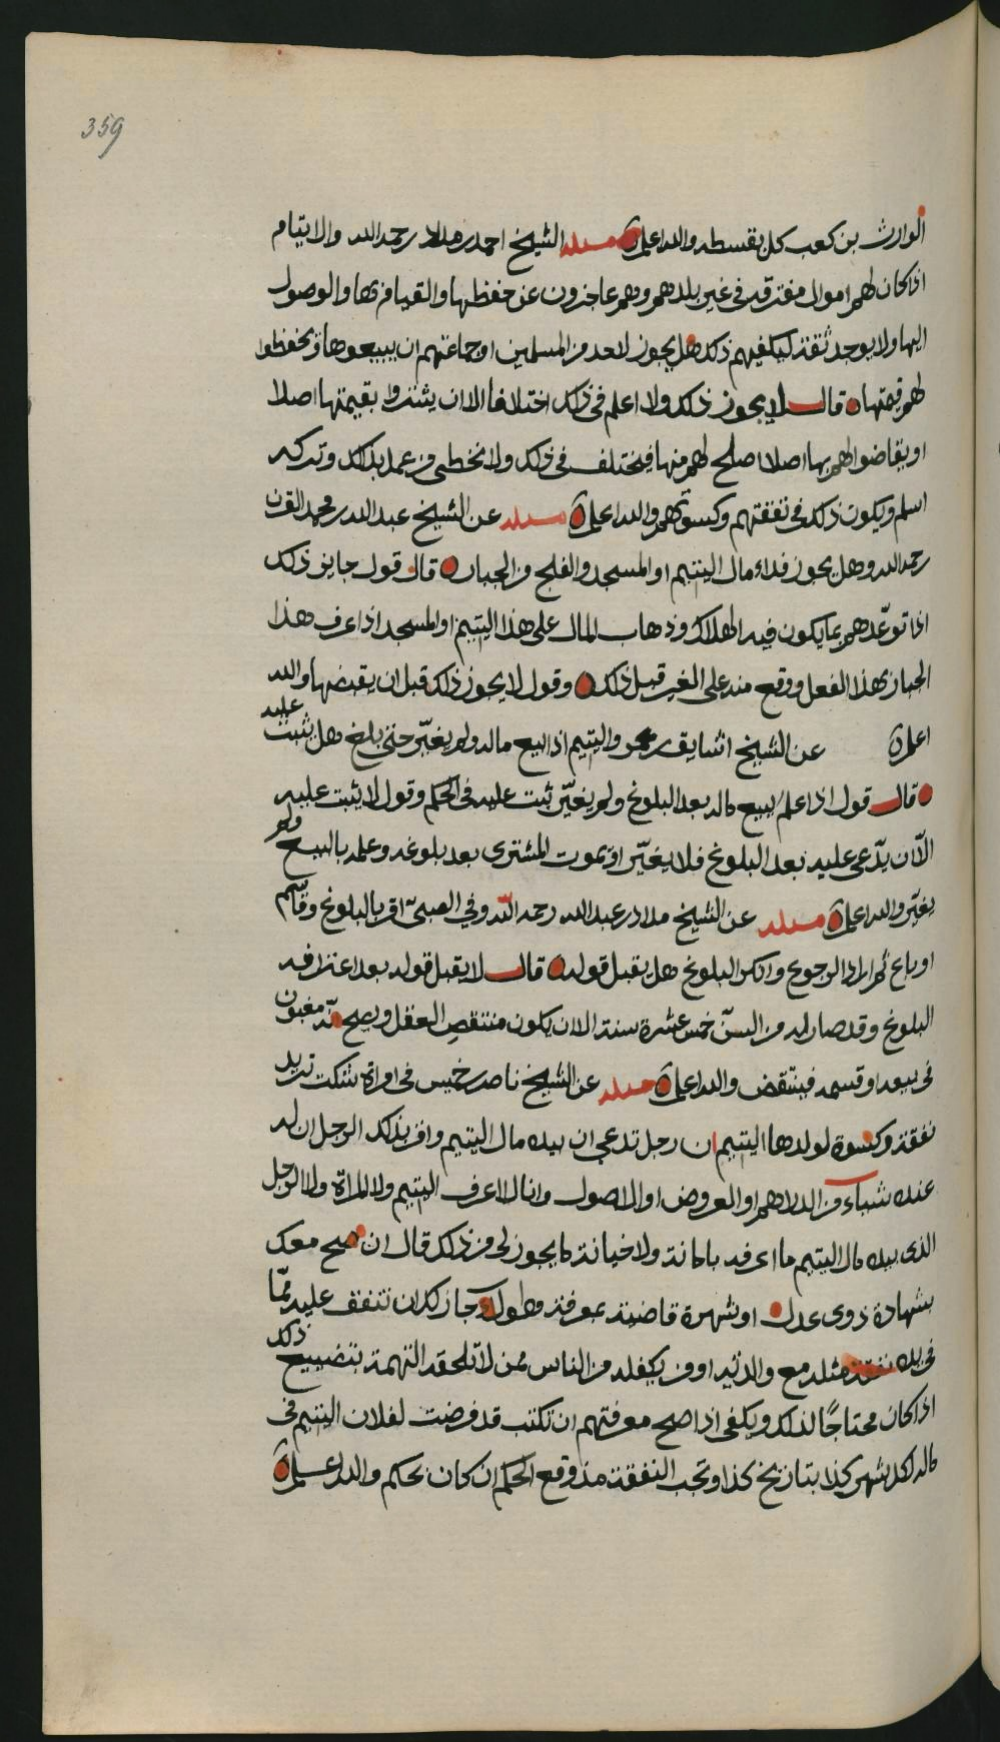 359
الوارث بن كعب كل بقسطه والله اعلم مسئله الشيخ احمد بن مداد رحمه الله والايتام
اذا كان لهم اموال مفترقه في غير بلدهم وهم عاجزون عن حفظها والقيام بها والوصول
اليها ولا يوجد ثقة ليكلفيهم ذلك هل يجوز لاحد من المسلمين او جماعتهم ان يبيعوها ويحفظوا
لهم قيمتها قال لا يجوز ذلك ولا اعلم في ذلك اختلافا الا ان يشتروا بقيمتها اصلا
او يقاضوا لهم بها اصلا اصلح لهم منها فيختلف في ذلك ولا نخطي من عمل بذلك وتركه
اسلم ويكون ذلك في نفقتهم وكسوتهم والله اعلم مسئله عن الشيخ عبد الله بن محمد القرن
رحمه الله وهل يجوز فداء مال اليتيم او المسجد والفلج من الجبار قال قول جايز ذلك
اذا توعّدهم بما يكون فيه الهلاك وذهاب المال على هذا اليتيم او المسجد اذا عرف هذا
الجبار بهذا الفعل ووقع منه على الغير قبل ذلك وقول لا يجوز ذلك قبل ان يقبضها والله
اعلم عن الشيخ اليتيم اذا بيع ماله ولم يغيّر حتى بلغ هل يثبت عليه
قال قول اذا علم ببيع ماله بعد البلوغ ولم يغيّر ثبت عليه في الحكم وقول لا يثبت عليه
الّا ان يدّعى عليه بعد البلوغ فلا يغيّر او يموت المشترى بعد بلوغه وعلمه بالبيع ولم
يغيّر والله اعلم مسئله عن الشيخ مداد بن عبد الله رحمه الله وفي الصبي اقر بالبلوغ وقاسم
او باع ثم اراد الرجوع وانكر البلوغ هل يقبل قوله قال لا يقبل قوله بعد اعترافه
البلوغ وقد صار له من السنّ خمس عشرة سنة الا ان يكون منتقص العقل ويصح انه مغبون
في بيعه او قسمه فينتقض والله اعلم مسئله عن الشيخ ناصر بن خميس في امراة شكت تريد
نفقة وكسوة لولدها اليتيم ان رجل تدعي ان بيده مال اليتيم واقر بذلك الرجل ان له
عنده شياء من الدراهم او العروض او الاصول وانا لا اعرف اليتيم ولا المراة ولا الرجل
الذي بيده مال اليتيم ما اعرفه بامانة ولا خيانة ما يجوز لي من ذلك قال ان صح معك
بشهادة ذوى عدل او شهرة قاضية بمعرفة جاز لك ان تنفق عليه ممّا
في يده مثله مع والدته او من يكفله من الناس ممن لا تلحقه التهمة بتضييع ذلك
اذا كان محتاجًا لذلك ويكفي اذا صح معرفتهم ان تكتب قد فرضت لفلان اليتيم في
ماله لكل شهر كذا بتاريخ كذا وتجب النفقة منذ وقع الحكم ان كان بحكم والله اعلم